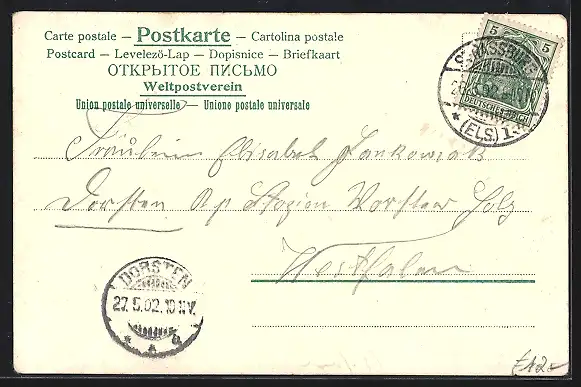 Carte postale – Postkarte – Cartolina postale
Postcard – Levelező-Lap – Dopisnice – Briefkaart
ОТКРЫТОЕ ПИСЬМО
Weltpostverein
Union postale universelle – Unione postale universale
5 5
DEUTSCHES REICH
STRASSBURG
(ELS.) 1
Fräulein Elisabet Jankowiak
Dorsten Stazion Vorsteher
Westfalen
DORSTEN
27.5.02.